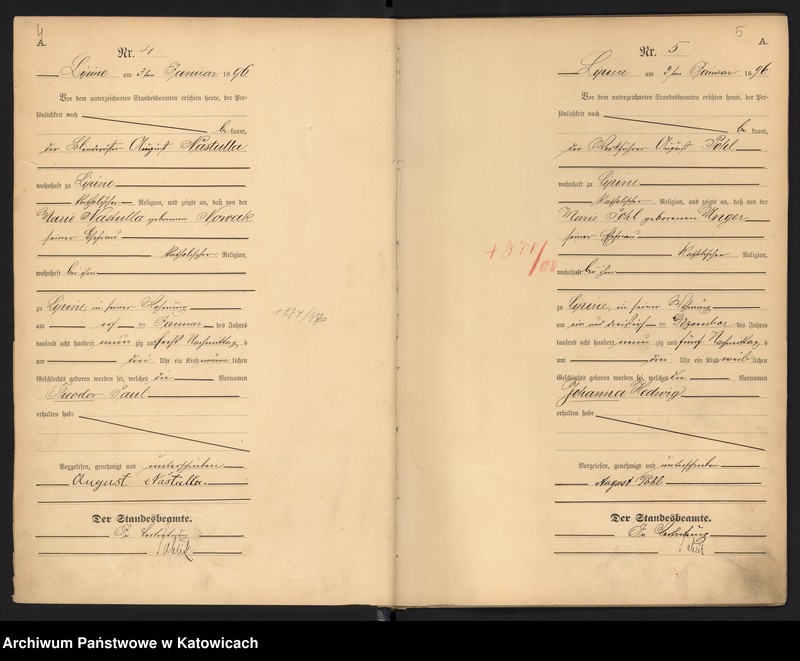 4
A.
Nr. 4
Lipine am 3ten Januar 1896
Vor dem unterzeichneten Standesbeamten erschien heute, der Per-
sönlichkeit nach
be kannt,
der August Nastulla
wohnhaft zu Lipine
katholischer Religion, und zeigte an, daß von der
Marie Nastulla geborenen Nowak
seiner Ehefrau
katholischer Religion,
wohnhaft bei ihm
zu Lipine, in seiner Wohnung
am Januar des Jahres
tausend acht hundert neun zig und sechs Nachmittags
um drei Uhr ein Kind männ lichen
Geschlechts geboren worden sei, welches die Vornamen
Theodor Paul
erhalten habe
Vorgelesen, genehmigt und unterschrieben
August Nastulla.
Der Standesbeamte.
In Vertretung
5
A.
Nr. 5
Lipine am 3ten Januar 1896
Vor dem unterzeichneten Standesbeamten erschien heute, der Per-
sönlichkeit nach
be kannt,
der Werkführer August Pohl
wohnhaft zu Lipine
katholischer Religion, und zeigte an, daß von der
Marie Pohl geborenen Unger
seiner Ehefrau
katholischer Religion,
wohnhaft bei ihm
zu Lipine, in seiner Wohnung
am ein und dreißig Dezember des Jahres
tausend acht hundert neun zig und fünf Nachmittags
um drei Uhr ein Kind weib lichen
Geschlechts geboren worden sei, welches die Vornamen
Johanna Hedwig
erhalten habe
Vorgelesen, genehmigt und unterschrieben
August Pohl
Der Standesbeamte.
In Vertretung
Archiwum Państwowe w Katowicach